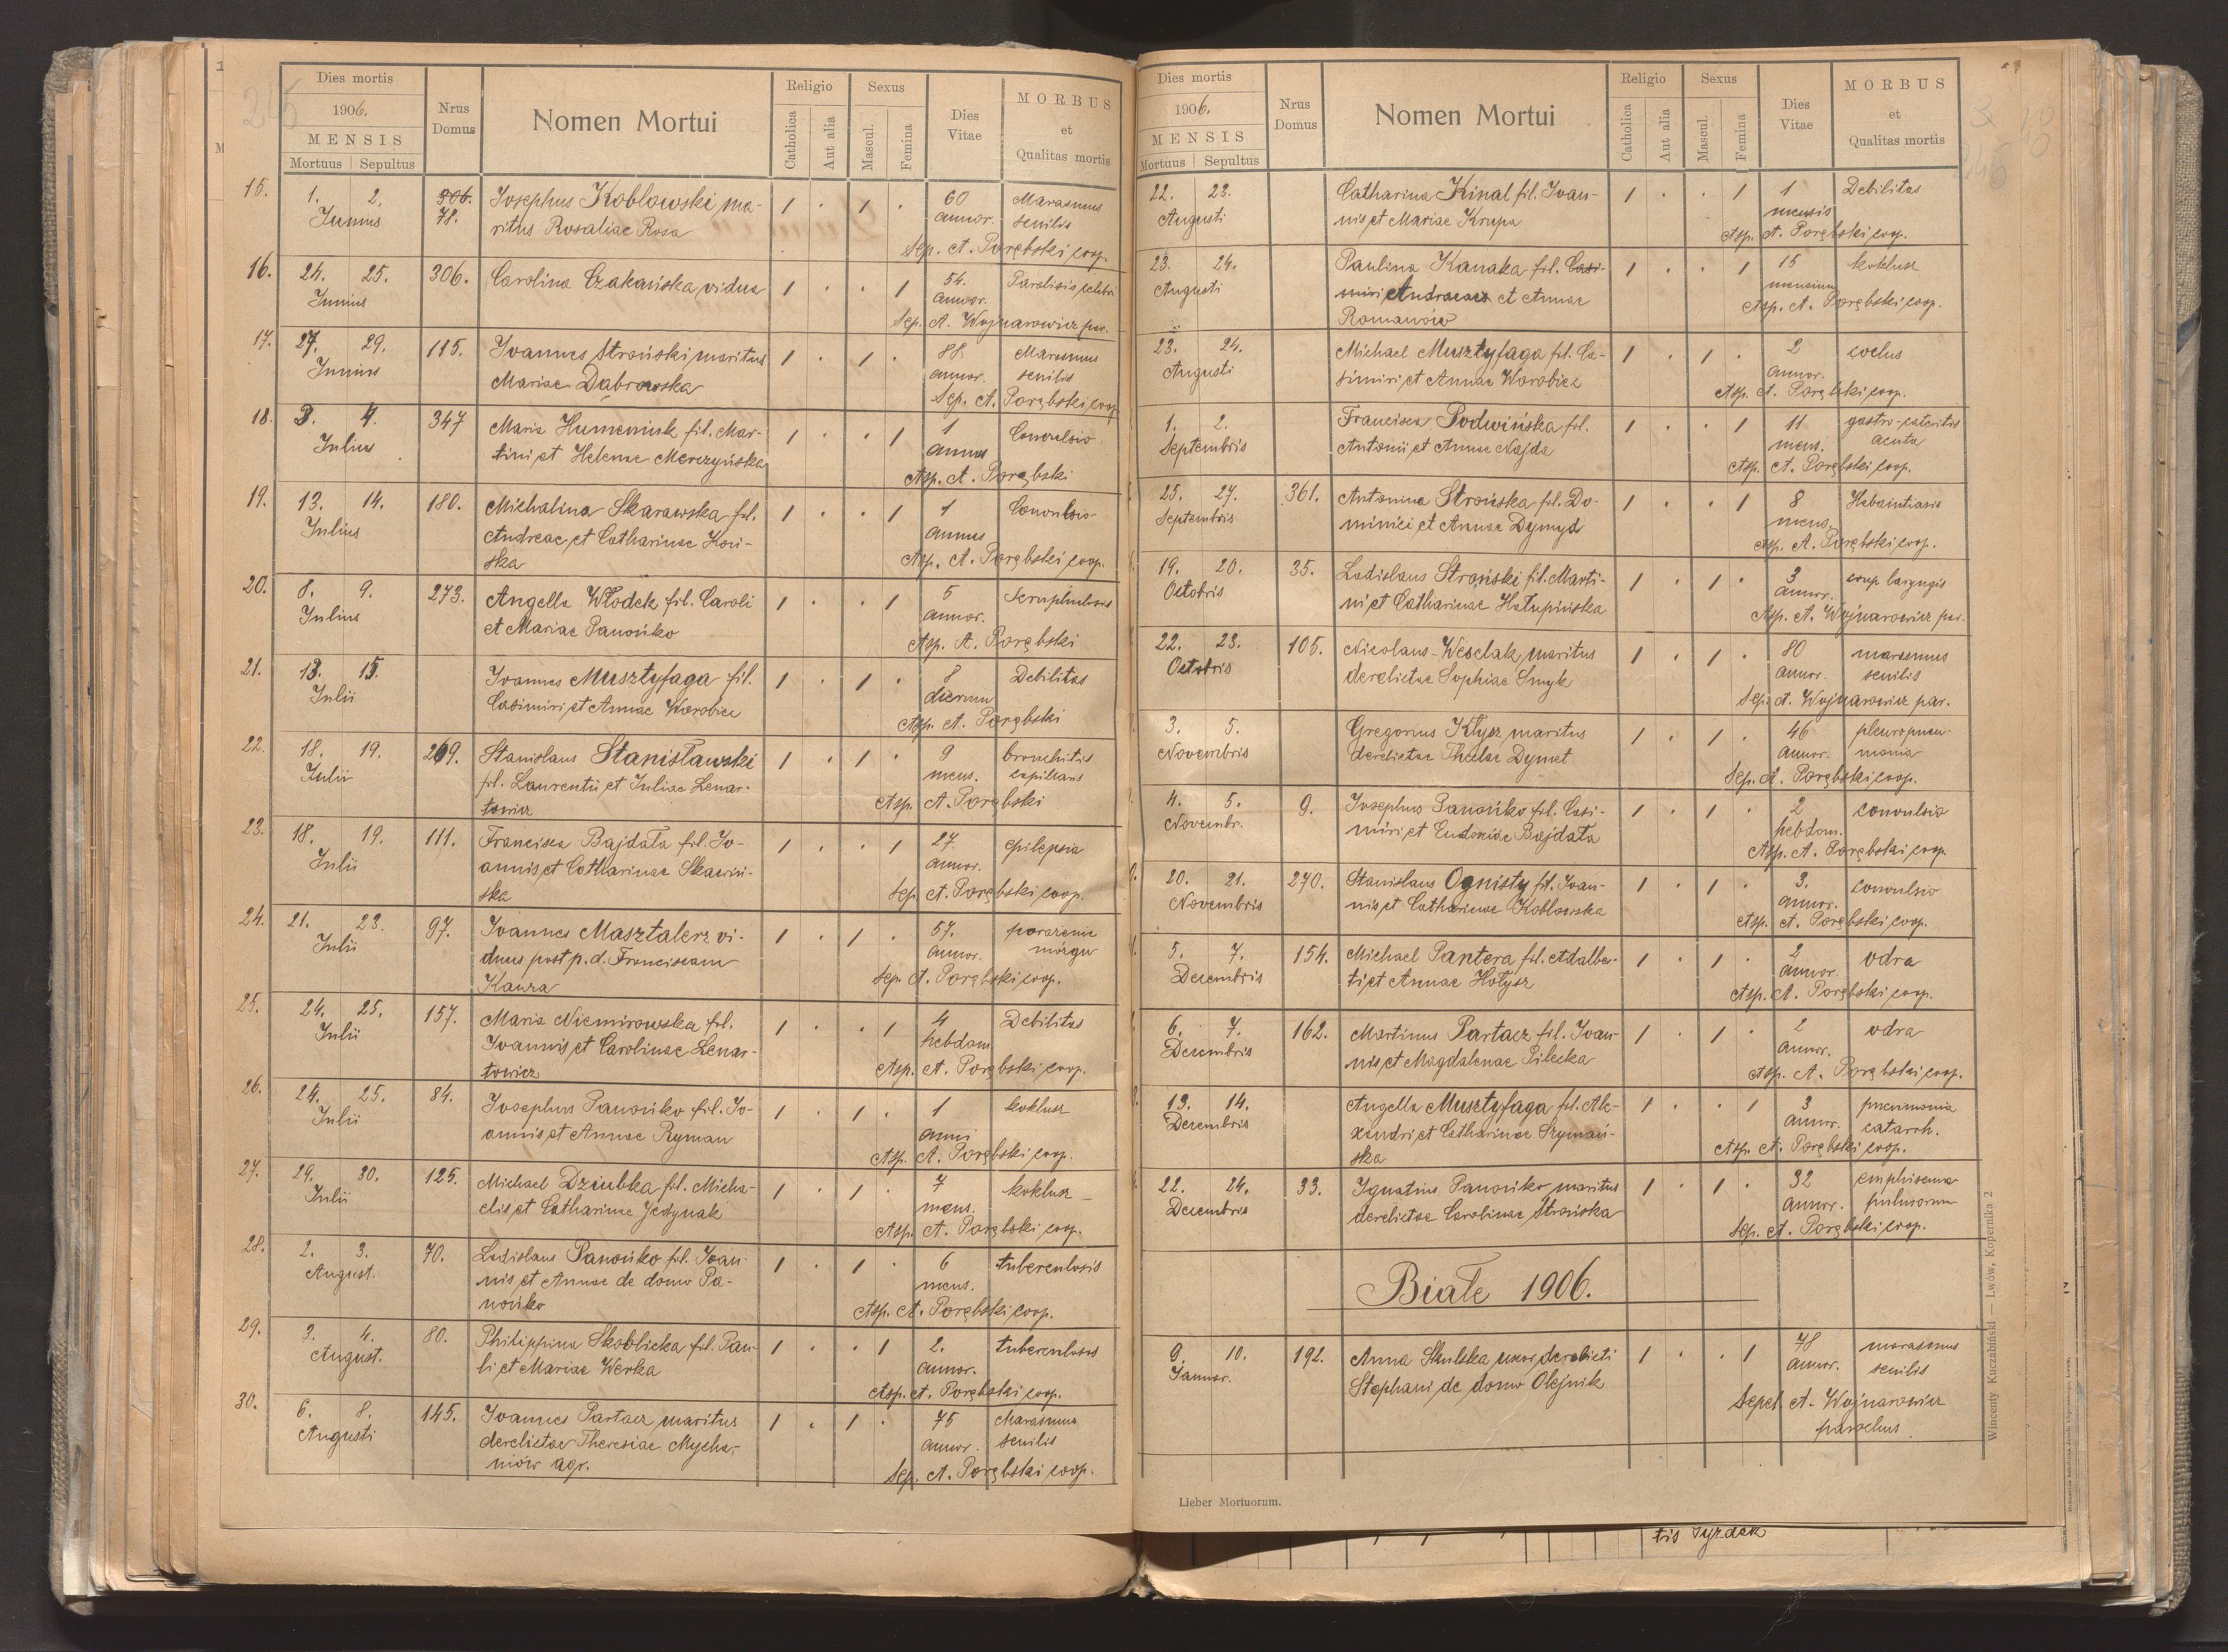 Dies mortis
1906.
MENSIS
Mortuus Sepultus
Nrus
Domus
Nomen Mortui
Religio
Catholica
Aut alia
Sexus
Mascul.
Femina
Dies
Vitae
MORBUS
et
Qualitas mortis
15. 1. 2. 306. Josephus Koblowski ma- 1 . 1 . 60 Marasmus
Junius 78. ritus Rosaliae Rosa annor. senilis
Sep. A. Porębski coop.
16. 24. 25. 306. Carolina Czakańska vidua 1 . . 1 54.
Junius annor.
Sep. A. Wojnarowicz par.
17. 27. 29. 115. Joannes Stroński maritus 1 . 1 . 88. Marasmus
Junius Mariae Dąbrowska annor. senilis
Sep. A. Porębski coop
18. 3. 4. 347 Maria Humeniuk fil. Mar- 1 . . 1 1 Convulsio
Julius tini et Helenae Merczyńska annus
Asp. A. Porębski
19. 13. 14. 180. Michalina Skarawska fil. 1 . . 1 1 Convulsio
Julius Andreae et Catharinae Koń- annus
ska Asp. A. Porębski coop.
20. 8. 9. 273. Angella Włodek fil. Caroli 1 . . 1 5
Julius et Mariae Panońko annor.
Asp. A. Porębski
21. 13. 15. Joannes Musztyfaga fil. 1 . 1 . 8 Debilitas
Julii Casimiri et Annae Worobiec dierum
Asp. A. Porębski
22. 18. 19. 269. Stanislaus Stanisławski 1 . 1 . 9 bronchitus
Julii fil. Laurentii et Juliae Lenar- mens. capillaris
towicz Asp. A. Porębski
23. 18. 19. 111. Francisca Bajdała fil. Jo- 1 . . 1 27. epilepsia
Julii annis et Catharinae Skawiń- annor.
ska Sep. A. Porębski coop.
24. 21. 23. 97. Joannes Masztalerz vi- 1 . 1 . 57. porazenie
Julii duus post p. d. Franciscam annor. mózgu
Kauza Sep. A. Porębski coop.
25. 24. 25. 157. Maria Niemirowska fil. 1 . . 1 4 Debilitas
Julii Joannis et Carolinae Lenar- hebdom
towicz Asp. A. Porębski coop.
26. 24. 25. 84. Josephus Panońko fil. Jo- 1 . 1 . 1 koklusz
Julii annis et Annae Ryman anni
Asp. A. Porębski coop.
27. 29. 30. 125. Michael Dziubka fil. Micha- 1 . 1 . 7 koklusz
Julii elis et Catharinae Jedynak mens.
Asp. A. Porębski coop.
28. 2. 3. 70. Ladislaus Panońko fil. Joan- 1 . 1 . 6 tuberculosis
August. nis et Annae de domo Pa- mens.
nońko Asp. A. Porębski coop.
29. 3. 4. 80. Philippina Skoblicka fil. Pau- 1 . . 1 2. tuberculosis
August. li et Mariae Werka annor.
Asp. A. Porębski coop.
30. 6. 8. 145. Joannes Partacz maritus 1 . 1 . 75 Marasmus
Augusti derelictae Theresiae Mycha- annor. senilis
niów agr. Sep. A. Porębski coop.
Dies mortis
1906.
MENSIS
Mortuus Sepultus
Nrus
Domus
Nomen Mortui
Religio
Catholica
Aut alia
Sexus
Mascul.
Femina
Dies
Vitae
MORBUS
et
Qualitas mortis
22. 23. Catharina Kinal fil. Joan- 1 . . 1 1 Debilitas
Augusti nis et Mariae Krupa mensis
Asp. A. Porębski coop.
23. 24. Paulina Kanaka fil. Casi- 1 . . 1 15 koklusz
Augusti miri Andraeae et Annae mensium
Romanów Asp. A. Porębski coop.
23. 24. Michael Musztyfaga fil. Ca- 1 . 1 . 2
Augusti simiri et Annae Worobiec annor.
Asp. A. Porębski coop.
1. 2. Francisca Podwińska fil. 1 . . 1 11
Septembris Antonii et Annae Najda mens. acuta
Asp. A. Porębski coop.
25. 27. 361. Antonina Strońska fil. Do- 1 . . 1 8
Septembris minici et Annae Dymyd mens.
Asp. A. Porębski coop.
19. 20. 35. Ladislaus Stroński fil. Marti- 1 . 1 . 3 crup laryngis
Octobris ni et Catharinae Hałupińska annor.
Asp. A. Wojnarowicz par.
22. 23. 105. Nicolaus Wesclak maritus 1 . 1 . 80 marasmus
Octobris derelictae Sophiae Smyk annor. senilis
Sep. A. Wojnarowicz par.
3. 5. Gregorius Kłysz maritus 1 . 1 . 46 pleuropneu-
Novembris derelictae Theclae Dymet annor. monia
Sep. A. Porębski coop.
4. 5. 9. Josephus Panońko fil. Casi- 1 . 1 . 2 convulsio
Novembr. miri et Eudoxiae Bajdała hebdom.
Asp. A. Porębski coop.
20. 21. 270. Stanislaus Ognisty fil. Joan- 1 . 1 . 3. convulsio
Novembris nis et Catharinae Koblowska annor.
Asp. A. Porębski coop.
5. 7. 154. Michael Pantera fil. Adalber- 1 . 1 . 2 odra
Decembris ti et Annae Hołysz annor.
Asp. A. Porębski coop.
6. 7. 162. Martinus Partacz fil. Joan- 1 . 1 . 2 odra
Decembris nis et Magdalenae Pilecka annor.
Asp. A. Porębski coop.
13. 14. Angella Musztyfaga fil. Ale- 1 . . 1 3 pneumonia
Decembris xandri et Catharinae Szymań- annor. catarrh.
ska Asp. A. Porębski coop.
22. 24. 33. Ignatius Panońko maritus 1 . 1 . 32 emphisema
Decembris derelictae Carolinae Strońska annor. pulmorum
Sep. A. Porębski coop.
Białe 1906.
9. 10. 192. Anna Skulska uxor derelicti 1 . . 1 78 marasmus
Januar. Stephani de domo Olejnik annor. senilis
Sepel. A. Wojnarowicz
parochus
Lieber Mortuorum.
Wincenty Kuczabiński — Lwów, Kopernika 2
tis Tyrdek